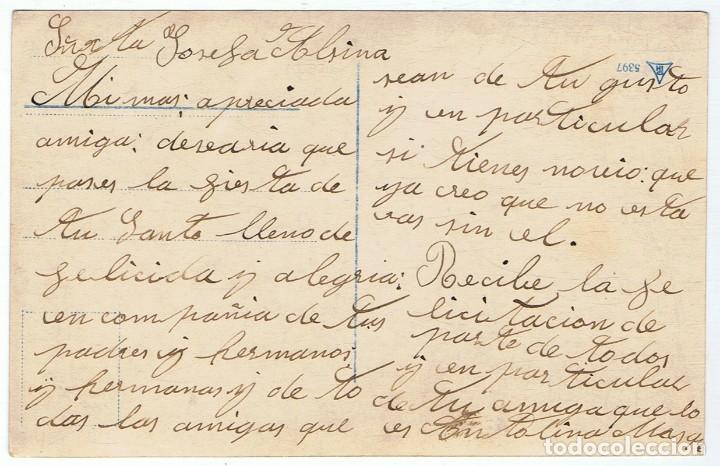 Srta Josefa Alsina
Mi mas; apreciada
amiga: desearia que
pases la fiesta de
tu Santo lleno de
felicida y alegria;
en compañia de tus
padres y hermanos;
y hermanas y de to
das las amigas que
sean de tu gusto
y en particular
si tienes novio: que
ya creo que no esta
ras sin el.
Recibe la fe
licitacion de
parte de todos
y en particular
de tu amiga que lo
es Antolina
5397
todocoleccion